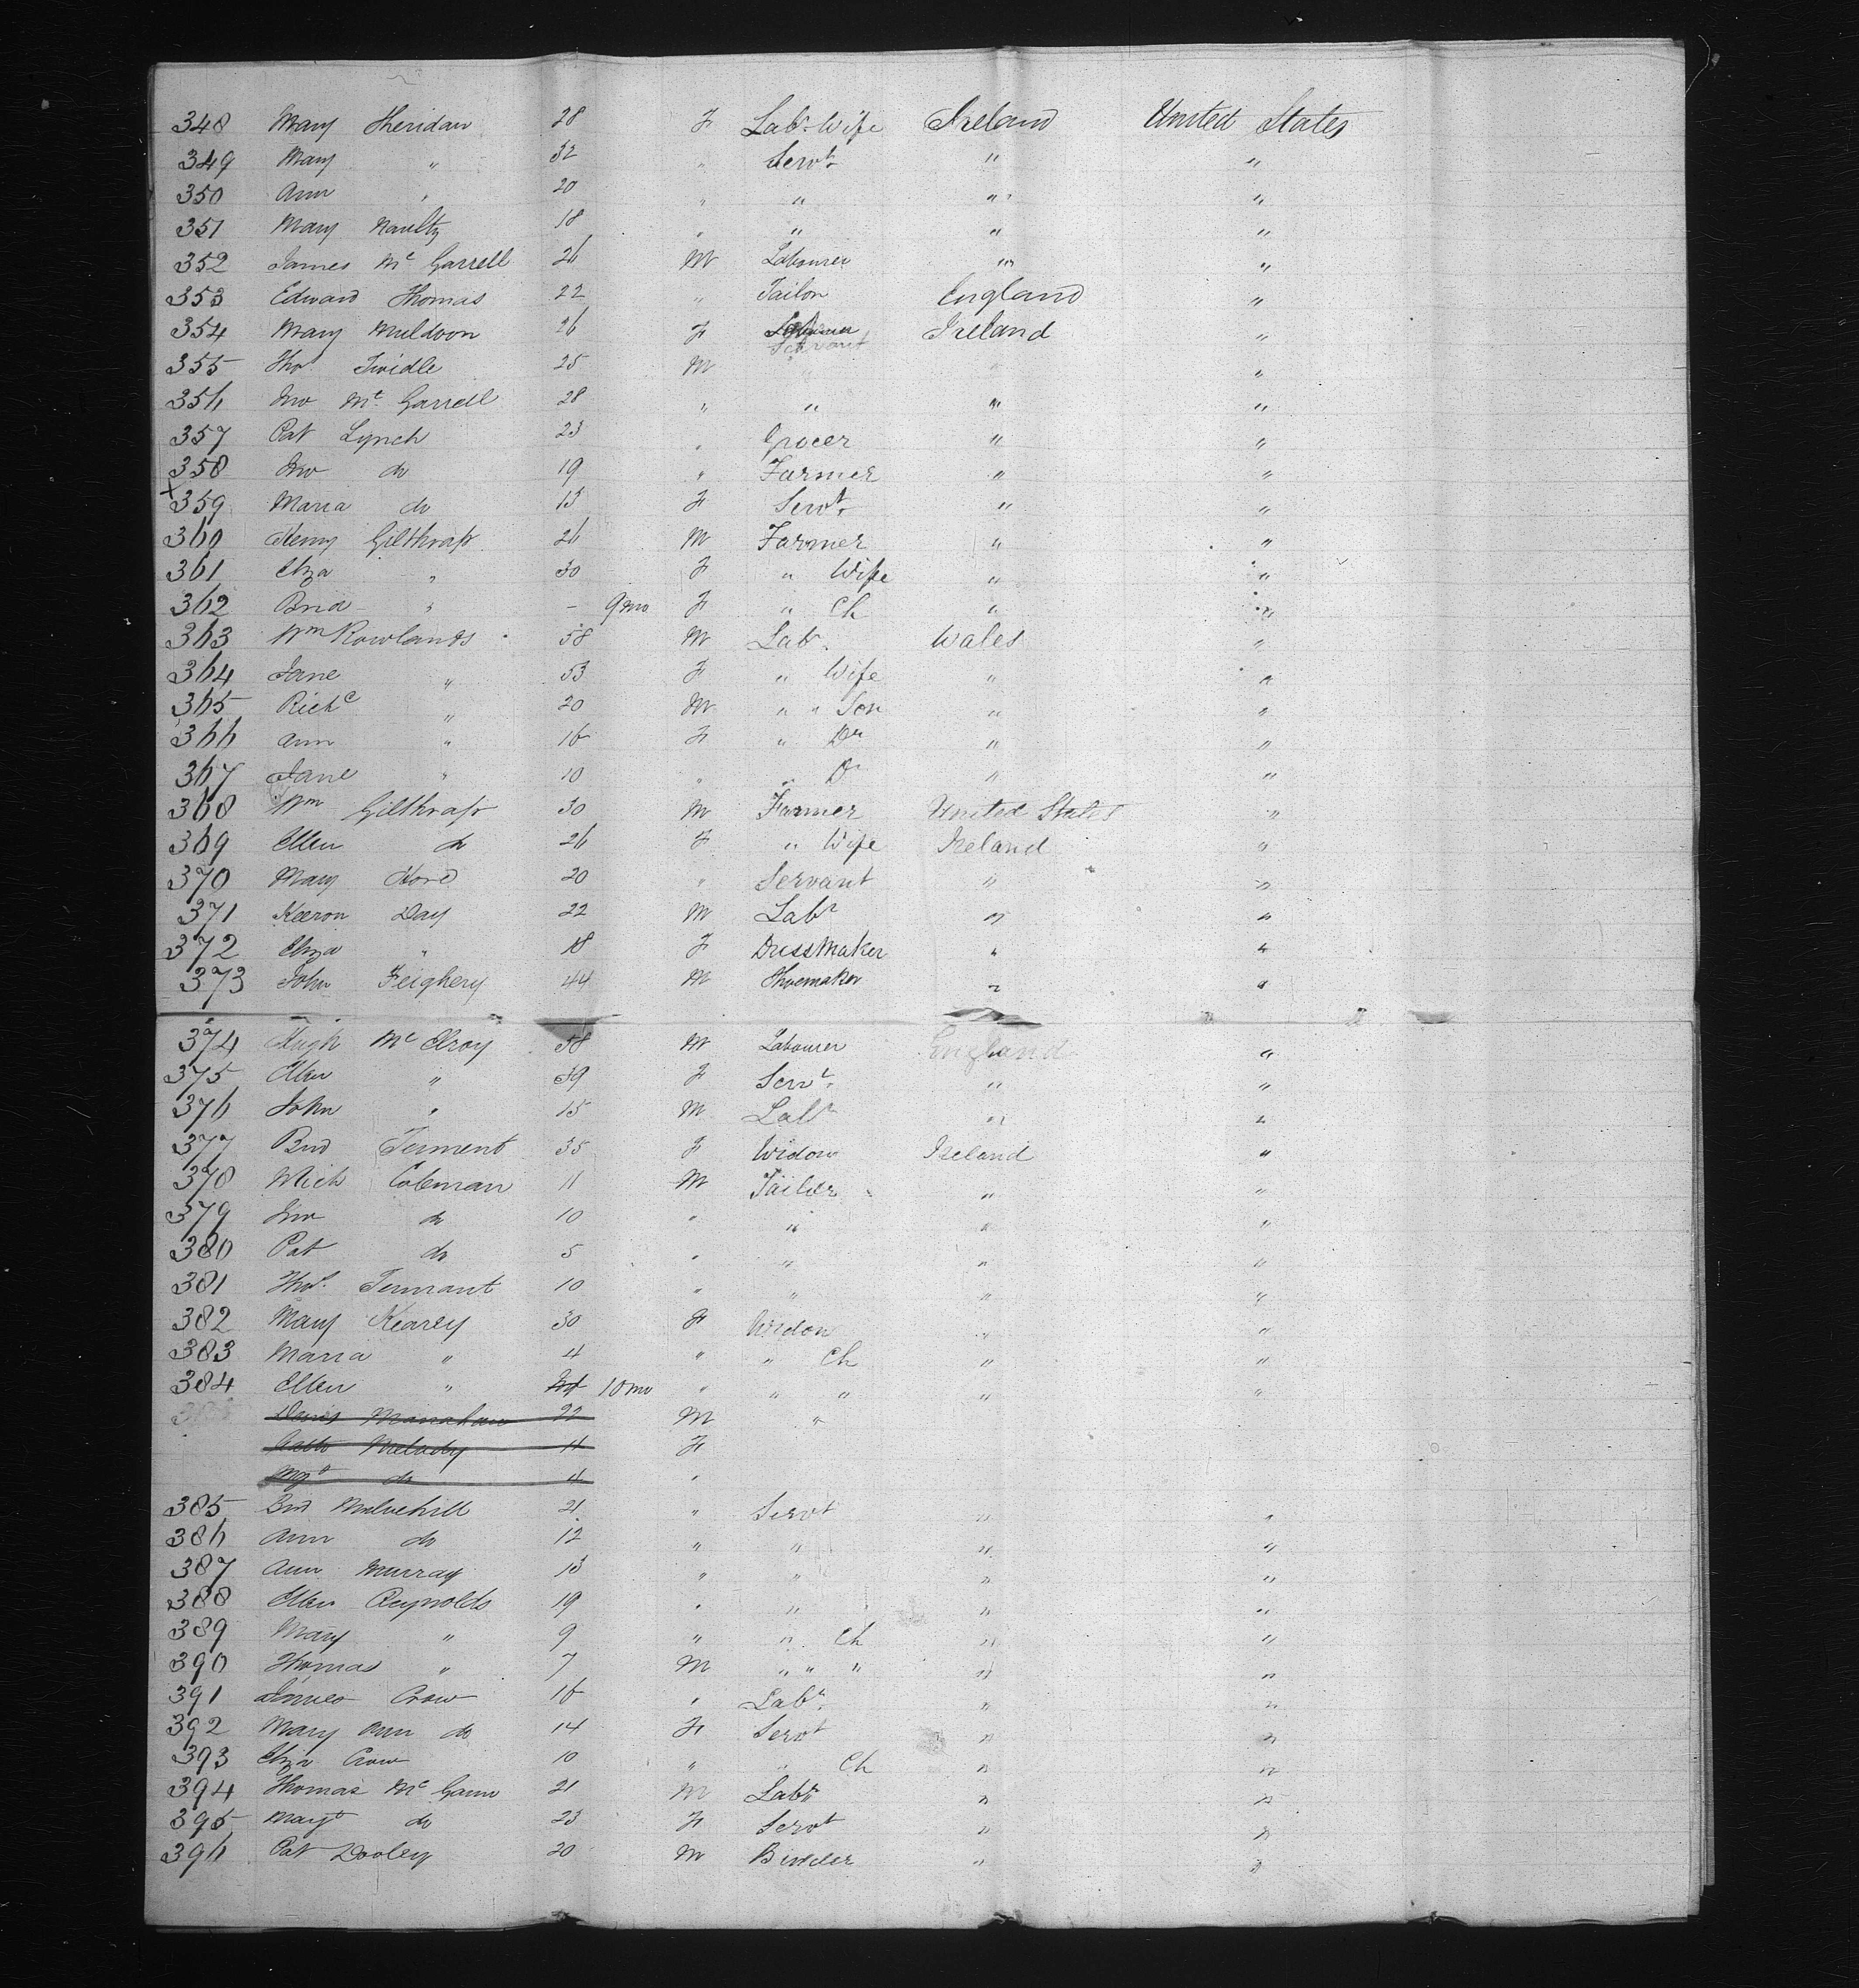 348 Mary Sheridan 28 F Labr Wife Ireland United States
349 Mary " 32 " Servt " "
350 Ann " 20 " " " "
351 Mary 18 " " " "
352 James Mc Garrell 26 M Labourer " "
353 Edward Thomas 22 " Tailor England "
354 Mary Muldoon 26 F Labourer Servant Ireland "
355 Thos Twidle 25 M " " "
356 Jno Mc Garrell 28 " " " "
357 Pat Lynch 23 " Grocer " "
358 Jno do 19 " Farmer " "
x 359 Maria do 15 F Servt " "
360 Henry Gilthrap 26 M Farmer " "
361 Eliza " 30 F " Wife " "
362 Brid " - 9 mo F " Ch " "
363 Wm Rowlands 58 M Labr Wales "
364 Jane " 53 F " Wife " "
365 Richd " 20 M " " Son " "
366 Ann " 16 F " Dr " "
367 Jane " 10 " " Dr " "
368 Wm Gilthrap 30 M Farmer United States "
369 Ellen do 26 F " Wife Ireland "
370 Mary Hore 20 " Servant " "
371 Keeron Day 22 M Labr " "
372 Eliza " 18 F DressMaker " "
373 John Feighery 44 M Shoemaker " "
374 Hugh Mc Elroy 58 M Labourer England "
375 Ellen " 59 F Servt " "
376 John " 15 M Labr " "
377 Brid Terment 35 F Widow Ireland "
378 Mich Coleman 11 M Tailor " "
379 Jno do 10 " " " "
380 Pat do 5 " " " "
381 Thos Tennant 10 " " " "
382 Mary Kearey 30 F Widow " "
383 Maria " 4 " " Ch " "
384 Ellen " 10 mo " " " " "
Manahan 22 M "
Melody 11 F
Mgt do 4 "
385 Brid Mulvehill 21 " Servt " "
386 Ann do 12 " " " "
387 Ann Murray 13 " " " "
388 Ellen Reynolds 19 " " " "
389 Mary " 9 " " Ch " "
390 Thomas " 7 M " " " " "
391 James Crow 16 " Labr " "
392 Mary Ann do 14 F Servt " "
393 Eliza Crow 10 " " Ch " "
394 Thomas Mc Gann 21 M Labr " "
395 Margt do 23 F Servt " "
396 Pat Dooley 20 M Binder " "